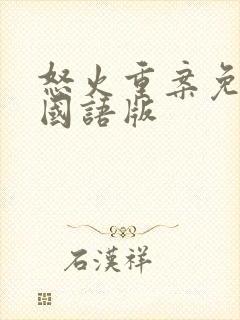 怒火重案免
國語版
石漢祥